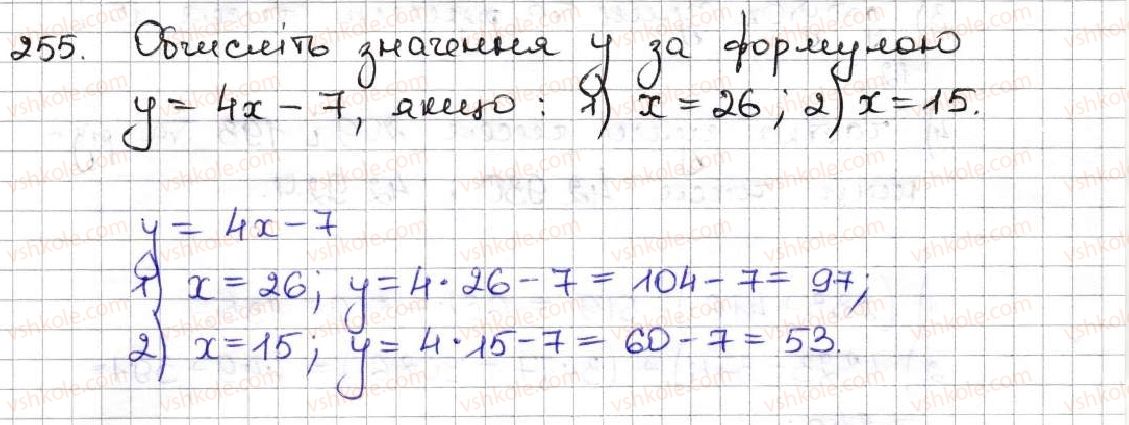 255. Обчисліть значення y за формулою
y = 4x - 7, якщо : 1) x = 26 ; 2) x = 15.
y = 4x - 7
1) x = 26 ; y = 4 · 26 - 7 = 104 - 7 = 97 ;
2) x = 15 ; y = 4 · 15 - 7 = 60 - 7 = 53.